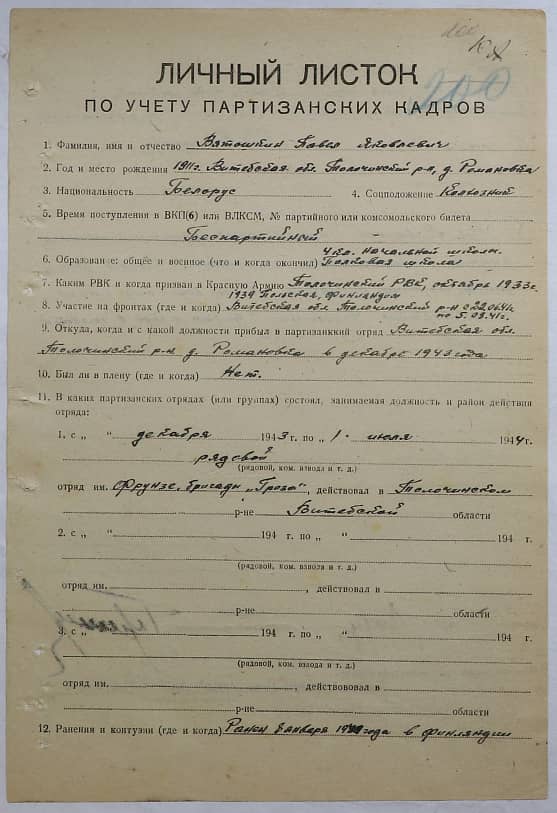 200
ЛИЧНЫЙ ЛИСТОК
ПО УЧЕТУ ПАРТИЗАНСКИХ КАДРОВ
1. Фамилия, имя и отчество Вятошкин Павел Яковлевич
2. Год и место рождения 1911г. Витебская обл. Толочинский р-н, д. Романовка
3. Национальность Белорус 4. Соцположение Колхозник
5. Время поступления в ВКП(б) или ВЛКСМ, № партийного или комсомольского билета
Беспартийный
4 кл. начальной школы.
6. Образование: общее и военное (что и когда окончил) Полковая школа
7. Каким РВК и когда призван в Красную Армию Толочинский РВК, октябрь 1933г.
1939 Польская, Финляндия
8. Участие на фронтах (где и когда) Витебская обл. Толочинский р-н с 22.06.41г.
по 5.08.41г.
9. Откуда, когда и с какой должности прибыл в партизанкий отряд Витебская обл.
Толочинский р-н д. Романовка в декабре 1943 года
10. Был ли в плену (где и когда) Нет.
11. В каких партизанских отрядах (или группах) состоял, занимаемая должность и район действия
отряда:
1. с „ “ декабря 1943 г. по „ 1 “ июля 1944 г.
рядовой
(рядовой, ком. взвода и т. д.)
отряд им. Фрунзе, бригады „Гроза“, действовал в Толочинском
р-не Витебской области
2. с „ “ 194 г. по „ “ 194 г.
(рядовой, ком. взвода и т. д.)
отряд им. , действовал в
р-не области
3. с „ “ 194 г. по „ “ 194 г.
(рядовой, ком. взвода и т. д.)
отряд им. , действововал в
р-не области
12. Ранения и контузии (где и когда) Ранен января года в Финляндии